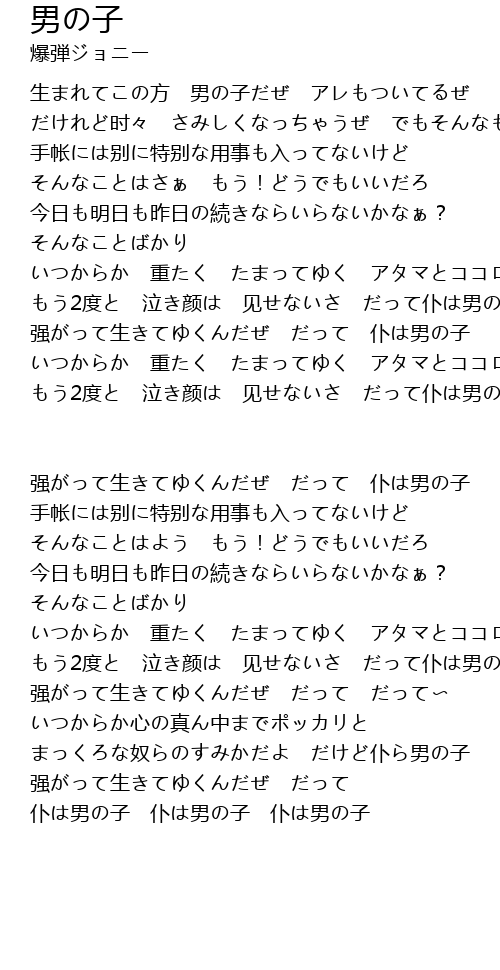 男の子
爆弾ジョニー
生まれてこの方　男の子だぜ　アレもついてるぜ
だけれど时々　さみしくなっちゃうぜ　でもそんなも
手帐には别に特别な用事も入ってないけど
そんなことはさぁ　もう！どうでもいいだろ
今日も明日も昨日の続きならいらないかなぁ？
そんなことばかり
いつからか　重たく　たまってゆく　アタマとココロ
もう2度と　泣き颜は　见せないさ　だって仆は男の
强がって生きてゆくんだぜ　だって　仆は男の子
いつからか　重たく　たまってゆく　アタマとココロ
もう2度と　泣き颜は　见せないさ　だって仆は男の
强がって生きてゆくんだぜ　だって　仆は男の子
手帐には别に特别な用事も入ってないけど
そんなことはよう　もう！どうでもいいだろ
今日も明日も昨日の続きならいらないかなぁ？
そんなことばかり
いつからか　重たく　たまってゆく　アタマとココロ
もう2度と　泣き颜は　见せないさ　だって仆は男の
强がって生きてゆくんだぜ　だって　だって〜
いつからか心の真ん中までポッカリと
まっくろな奴らのすみかだよ　だけど仆ら男の子
强がって生きてゆくんだぜ　だって
仆は男の子　仆は男の子　仆は男の子